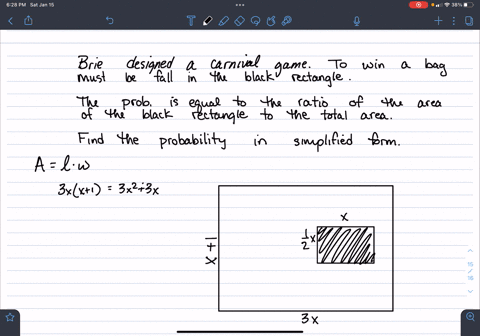 6:28 PM Sat Jan 15
38%
Brie designed a carnival game. To win a bag
must be fall in the black rectangle.
The prob. is equal to the ratio of the area
of the black rectangle to the total area.
Find the probability in simplified form.
A = l·w
3x(x+1) = 3x²+3x
x
1/2 x
x+1
3x
15
/
16